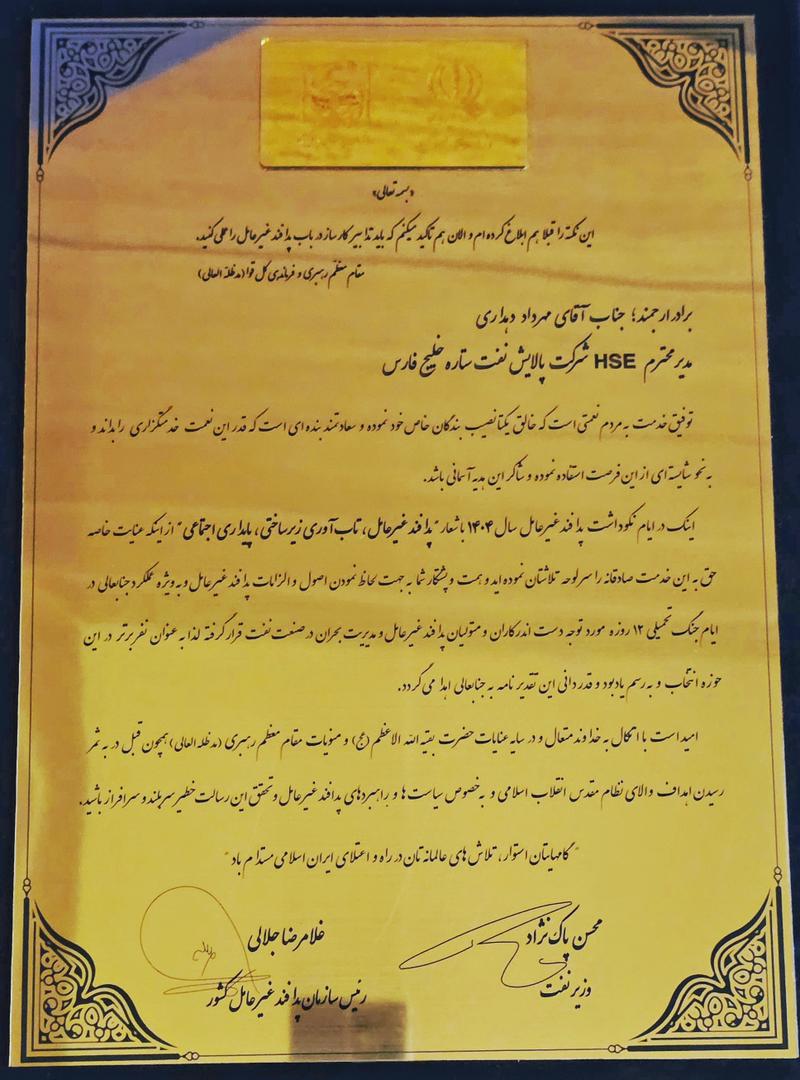 «بسمه تعالی»
این نکته را قبلا هم ابلاغ کرده ام و الان هم تاکید میکنم که باید تدابیر کارساز در باب پدافند غیرعامل را عملی کنید.
مقام معظم رهبری و فرماندهی کل قوا (مدظله العالی)
برادر ارجمند؛ جناب آقای مهرداد دهداری
مدیر محترم HSE شرکت پالایش نفت ستاره خلیج فارس
توفیق خدمت به مردم نعمتی است که خالق یکتا نصیب بندگان خاص خود نموده و سعادتمند بنده ای است که قدر این نعمت خدمتگزاری را بداند و
به نحو شایسته ای از این فرصت استفاده نموده و شاکر این هدیه آسمانی باشد.
اینک در ایام نکوداشت پدافند غیرعامل سال ۱۴۰۴ با شعار "پدافند غیرعامل، تاب آوری زیرساختی، پایداری اجتماعی" از اینکه عنایت خاصه
حق به این خدمت صادقانه را سرلوحه تلاشتان نموده اید و همت و پشتکار شما به جهت لحاظ نمودن اصول و الزامات پدافند غیرعامل و به ویژه عملکرد جنابعالی در
ایام جنگ تحمیلی ۱۲ روزه مورد توجه دست اندرکاران و متولیان پدافند غیرعامل و مدیریت بحران در صنعت نفت قرار گرفته لذا به عنوان نفر برتر در این
حوزه انتخاب و به رسم یادبود و قدردانی این تقدیرنامه به جنابعالی اهدا می گردد.
امید است با اتکال به خداوند متعال و در سایه عنایات حضرت بقیه الله الاعظم (عج) و منویات مقام معظم رهبری (مدظله العالی) همچون قبل در به ثمر
رسیدن اهداف والای نظام مقدس انقلاب اسلامی و به خصوص سیاست ها و راهبردهای پدافند غیرعامل و تحقق این رسالت خطیر سربلند و سرافراز باشید.
"گامهایتان استوار، تلاش های عالمانه تان در راه و اعتلای ایران اسلامی مستدام باد"
محسن پاک نژاد
وزیر نفت
غلامرضا جلالی
رئیس سازمان پدافند غیرعامل کشور